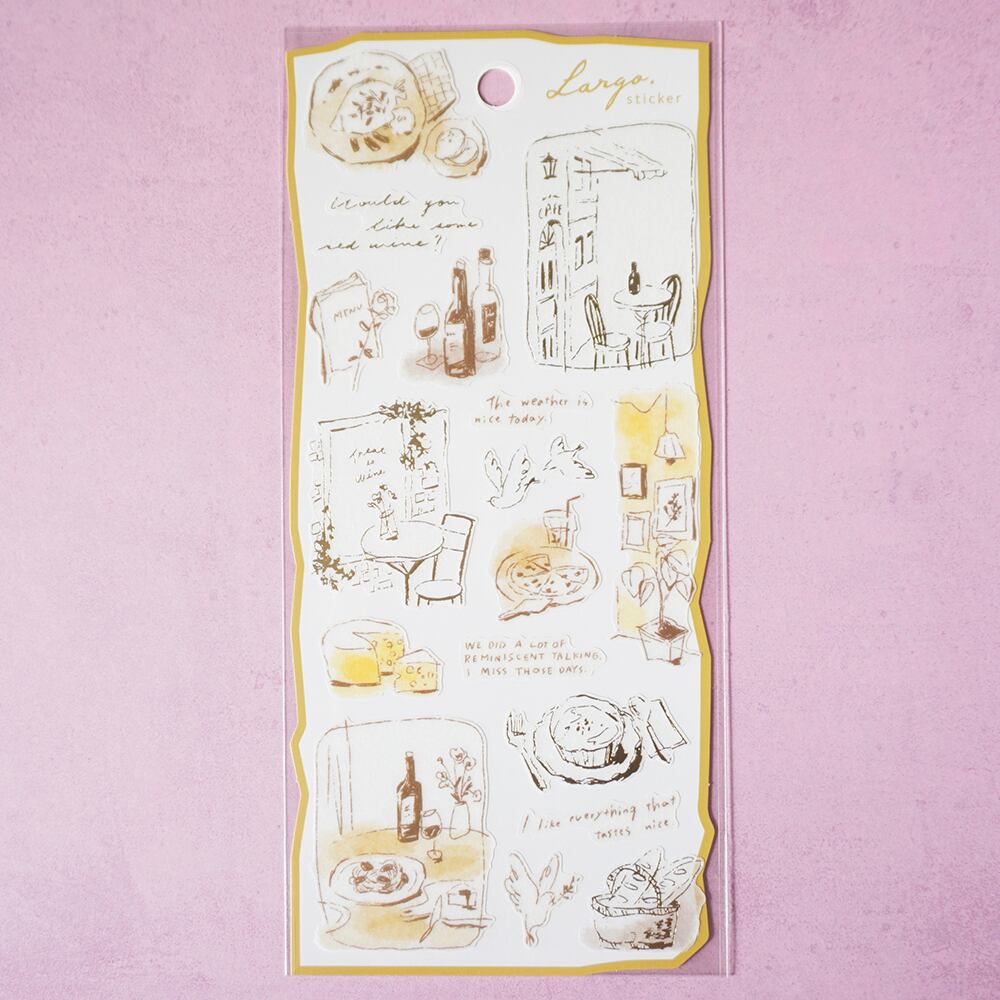 Largo.
sticker
Would you
like some
red wine?
CAFE
MENU
The weather is
nice today.
Wine
WE DID A LOT OF
REMINISCENT TALKING.
I MISS THOSE DAYS.
I like everything that
tastes nice.